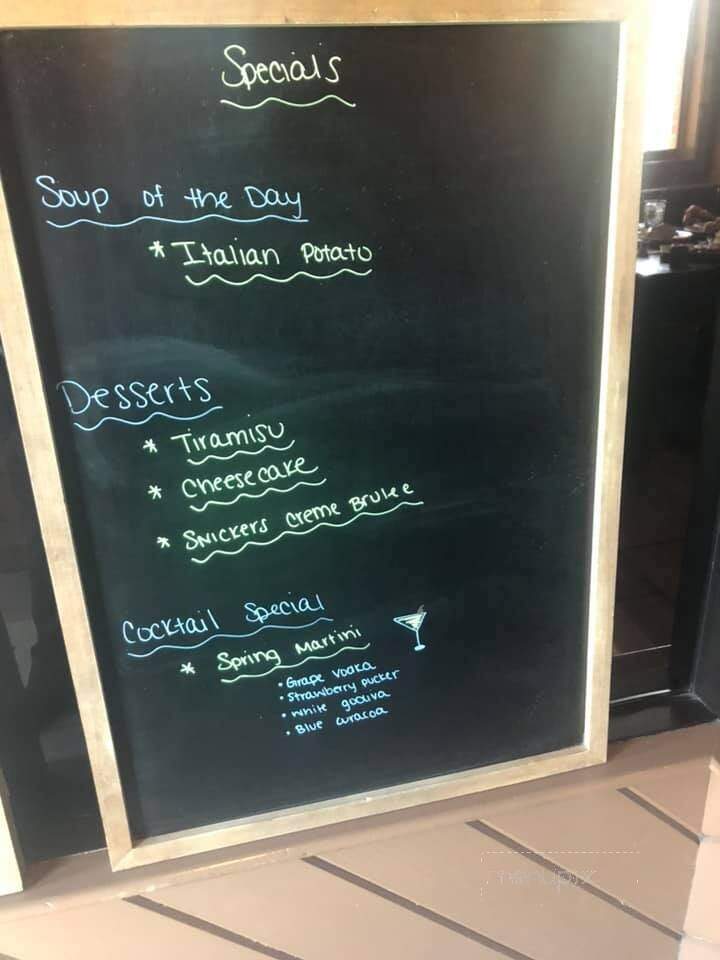 Specials
Soup of the Day
* Italian Potato
Desserts
* Tiramisu
* Cheesecake
* Snickers Creme Brulee
Cocktail Special
* Spring Martini
• Grape vodka
• Strawberry pucker
• white godiva
• Blue curacoa
menupix